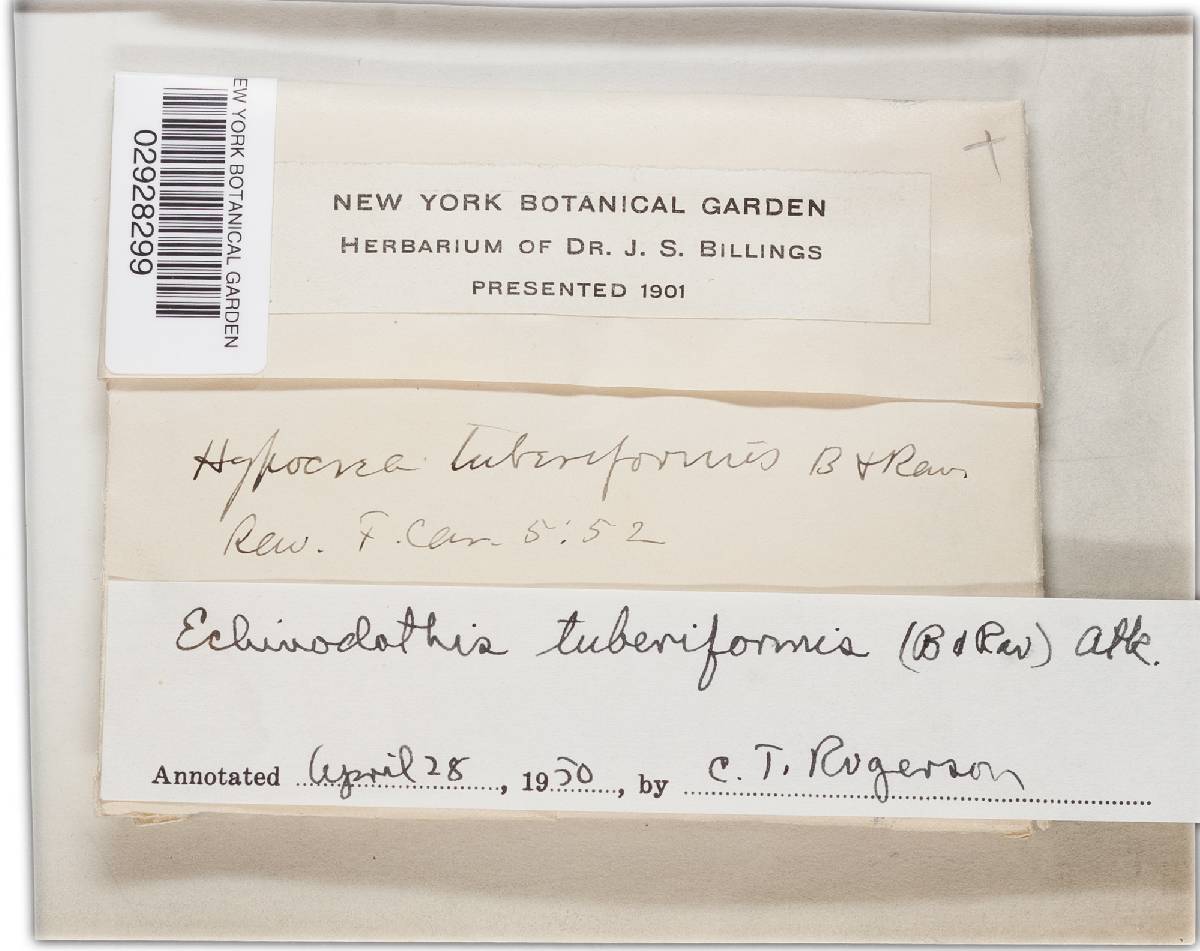 EW YORK BOTANICAL GARDEN
02928299
NEW YORK BOTANICAL GARDEN
HERBARIUM OF DR. J. S. BILLINGS
PRESENTED 1901
Hypocrea tuberiformis B & Rav.
Rav. F. Car. 5:52
Echinodothis tuberiformis (B & Rav) Atk.
Annotated April 28, 1950, by C. T. Rogerson